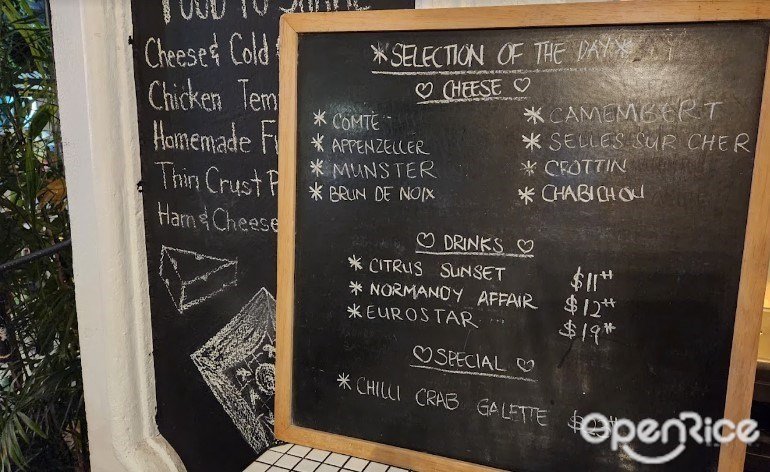 FOOD TO SHARE
Cheese & Cold
Chicken Tem
Homemade F
Thin Crust P
Ham & Cheese
*SELECTION OF THE DAY*
♡ CHEESE ♡
* COMTE
* APPENZELLER
* MUNSTER
* BRUN DE NOIX
* CAMEMBERT
* SELLES SUR CHER
* CROTTIN
* CHABICHOU
♡ DRINKS ♡
* CITRUS SUNSET $11++
* NORMANDY AFFAIR $12++
* EUROSTAR ... $19++
♡ SPECIAL ♡
* CHILLI CRAB GALETTE
OpenRice.com